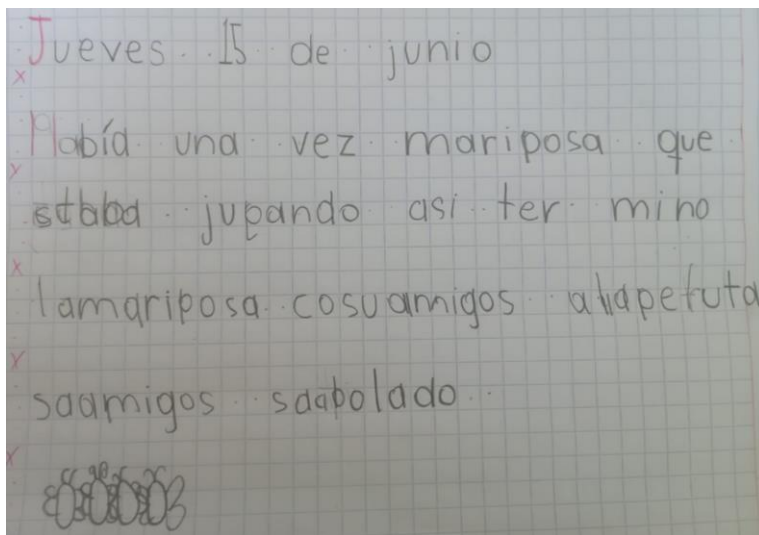 Jueves 15 de junio
Había una vez mariposa que
staba jugando asi ter mino
lamariposa cosuamigos
saamigos sdabolado